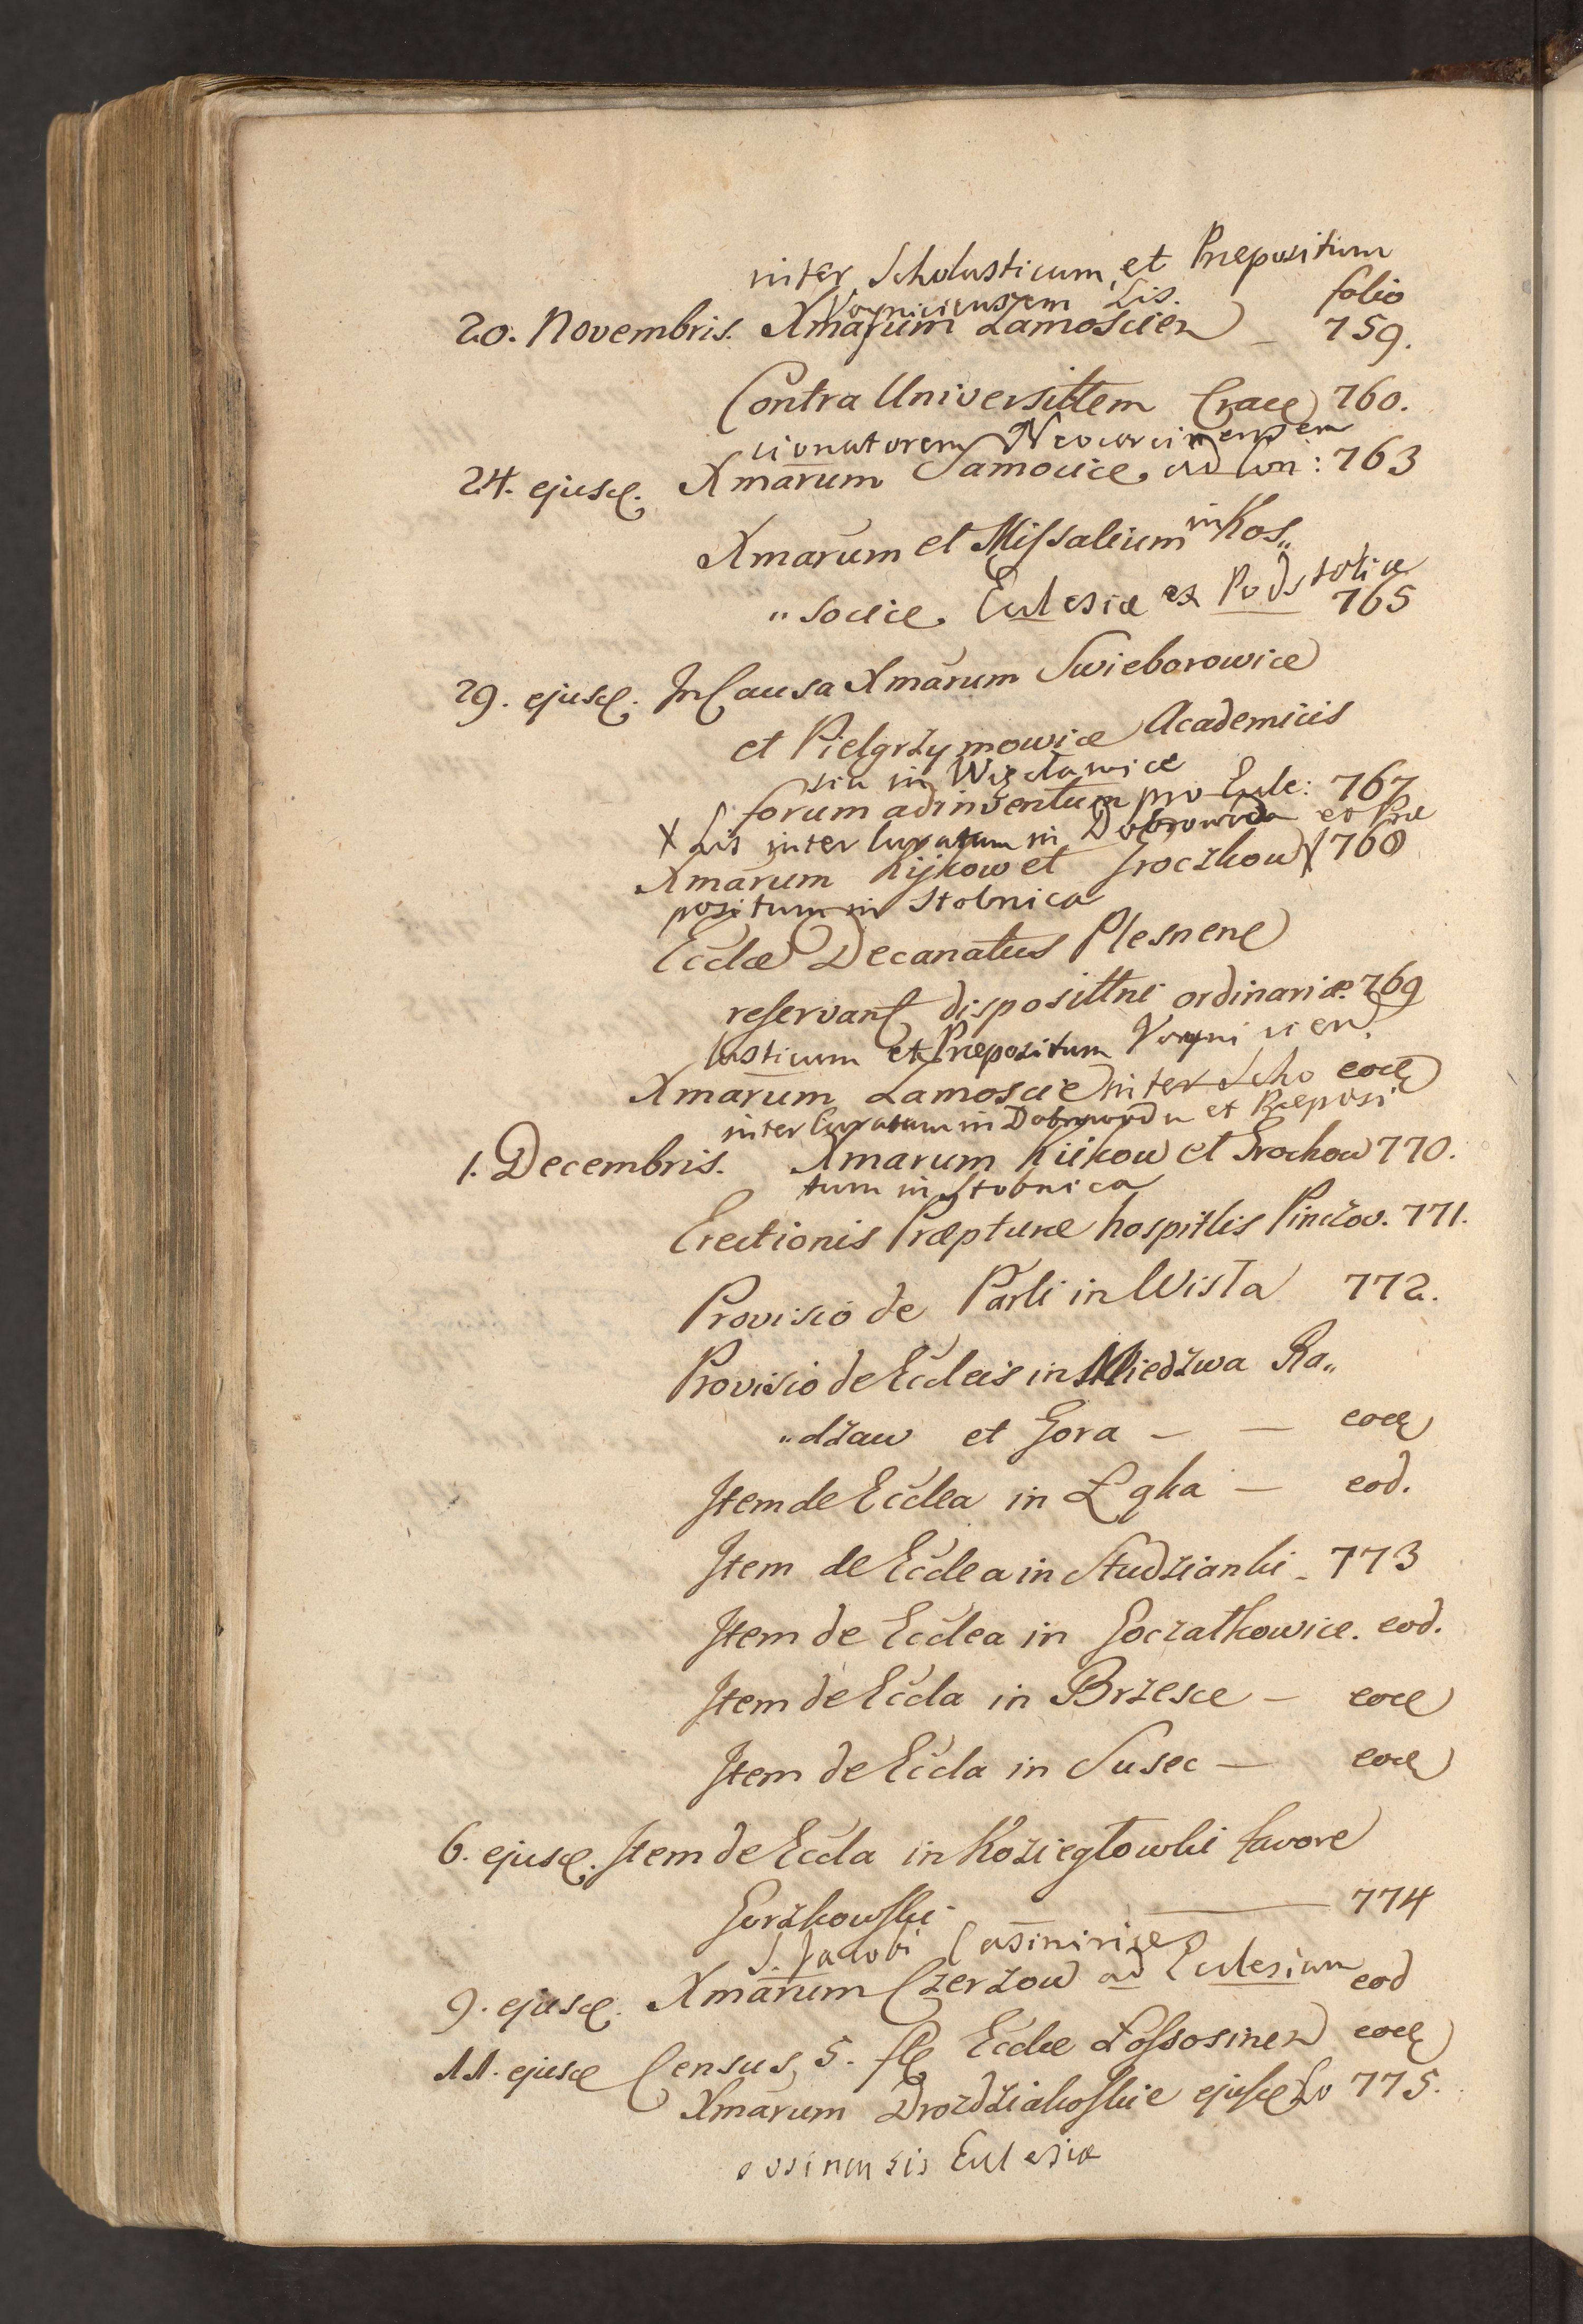 inter Scholasticum et Præpositum
Voyniciensem Lis. folio
20. Novembris. Xmarum Zamoscien 759.
Contra Universittem Crace 760.
cionatorem Neocorcinensem
24. ejusd. Xmarum Samocice ad Con: 763
Xmarum et Missalium in Kos„
„socice Eclesiæ ex Podstolice 765
29. ejusd. In Causa Xmarum Swieborowice
et Pielgrzymowice Academicis
sia in Wizclawice
forum adinventum pro Ecle: 767
X Lis inter Curatum in Dobrowoda et Præ
Xmarum Kijkow et Groczkow X 768
positum in Stobnica
Ecclæ Decanatus Plesnens
reservant disposittni ordinariæ 769
lasticum et Præpositum Voynicien
Xmarum Zamoscie inter Scho eod
inter Curatum in Dobrowoda et Præposi
1. Decembris. Xmarum Kiikow et Grochow 770.
tum in Stobnica
Erectionis Præpturæ hospitlis Pinczov. 771.
Provisio de Parli in Wisla 772.
Provisio de Eccleis in Miedzwa Ra„
„dzaw et Gora — — eod
Item de Ecclea in Lgka — eod.
Item de Ecclea in Studzianki - 773
Item de Ecclea in Goczalkowice. eod.
Item de Eccla in Brzesce — eod
Item de Eccla in Susec — eod
6. ejusd. Item de Eccla in Koziegłowki favore
Gorzkowski — 774
S. Jacobi Casimiriæ
9. ejusd. Xmarum Czerzow ad Eclesiam eod
11. ejusd Census 5. fl Ecclæ Lossosinen eod
Xmarum Drozdziakoskie ejusd Lo 775.
ossinensis Eclesiæ